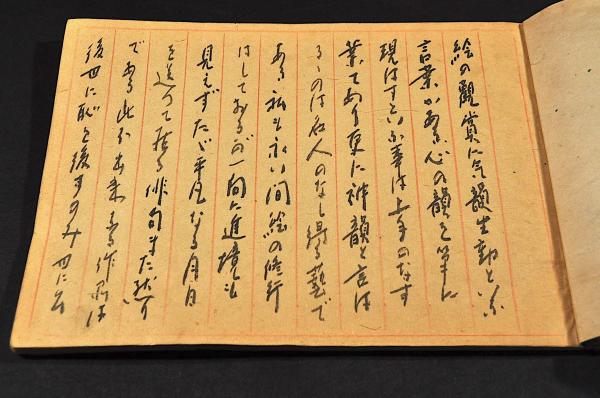 絵の観賞に気韻生動と云ふ
言葉がある心の韻を筆に
現はすと云ふ事は上手のなす
業であり更に神韻と言は
るゝのは名人のなし得る藝で
ある私も永い間絵の修行
はしておるが一向に進境も
見えずたゞ平凡なる月日
を送つて居る俳句また然り
である此ふ出来る作品は
後世に恥を後すのみ せに